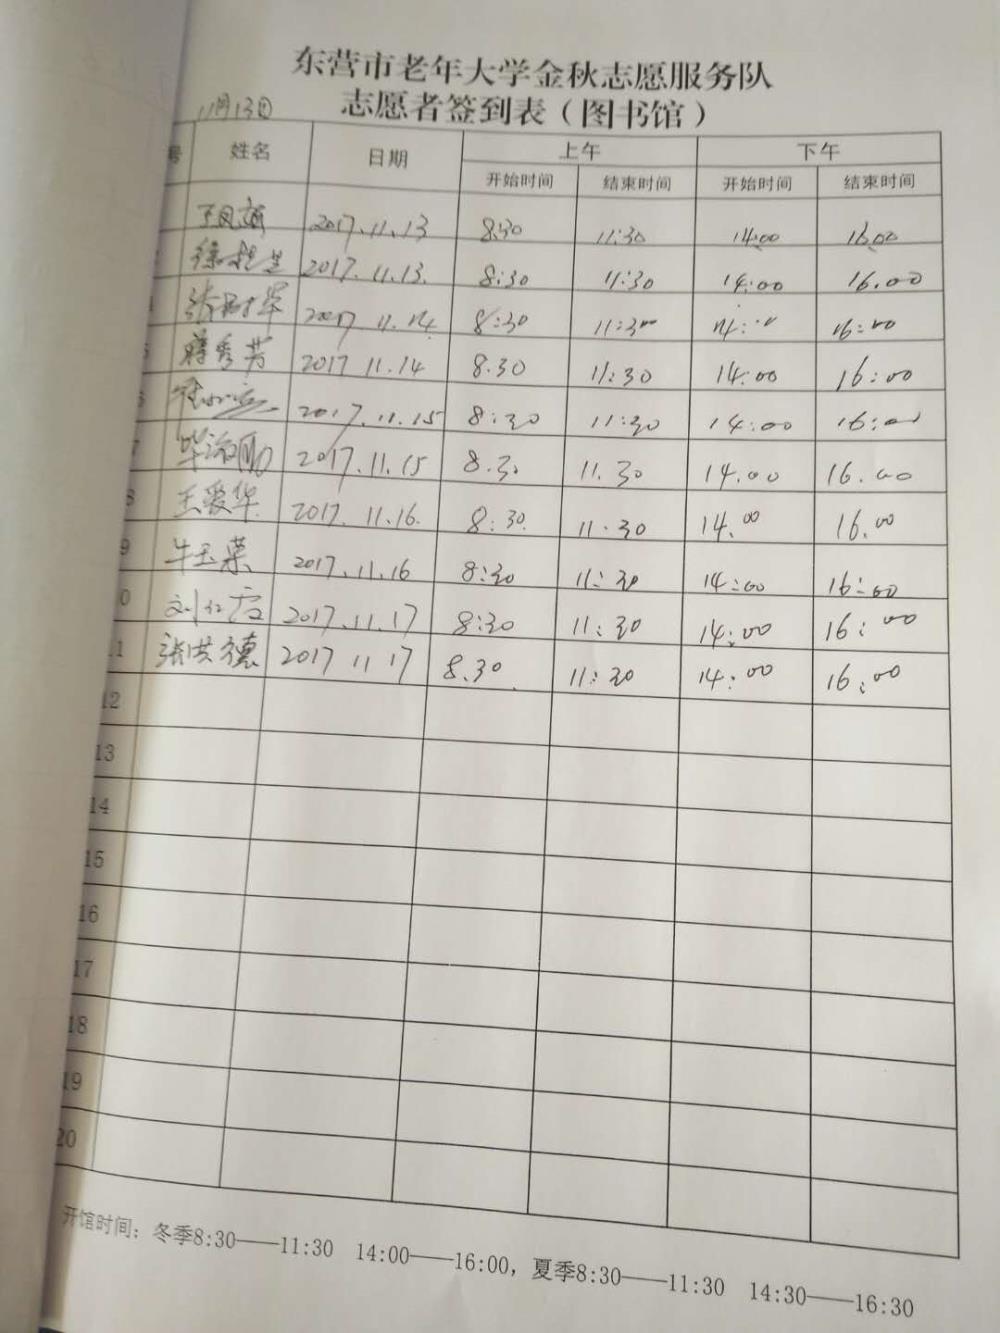 东营市老年大学金秋志愿服务队
志愿者签到表（图书馆）
11月13日
号 姓名 日期 上午 下午
开始时间 结束时间 开始时间 结束时间
2017.11.13 8:30 11:30 14:00 16:00
2017.11.13. 8:30 11:30 14:00 16.00
2017 11.14. 8:30 11:30 14:00 16:00
5 蒋秀芳 2017 11.14 8.30 11:30 14:00 16:00
6 2017.11.15 8:30 11:30 14:00 16:00
7 2017.11.15 8.30 11.30 14.00 16.00
8 王爱华 2017.11.16. 8:30 11:30 14.00 16.00
9 牛玉荣 2017.11.16 8:30 11:30 14:00 16:00
0 刘仁霞 2017.11.17 8:30 11:30 14:00 16:00
11 张洪德 2017 11 17 8.30 11:30 14:00 16:00
12
13
14
15
16
17
18
19
20
开馆时间：冬季8:30——11:30 14:00——16:00，夏季8:30——11:30 14:30——16:30